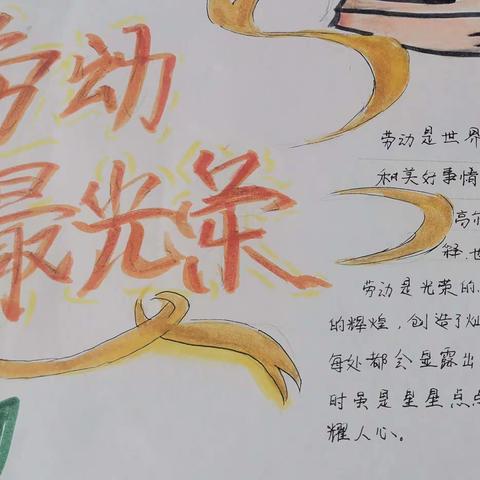 劳动
最光荣
劳动是世界
和美好事情
高尔
释.世
劳动是光荣的.
的辉煌，创造了灿
每处都会显露出
时虽是星星点点
耀人心。